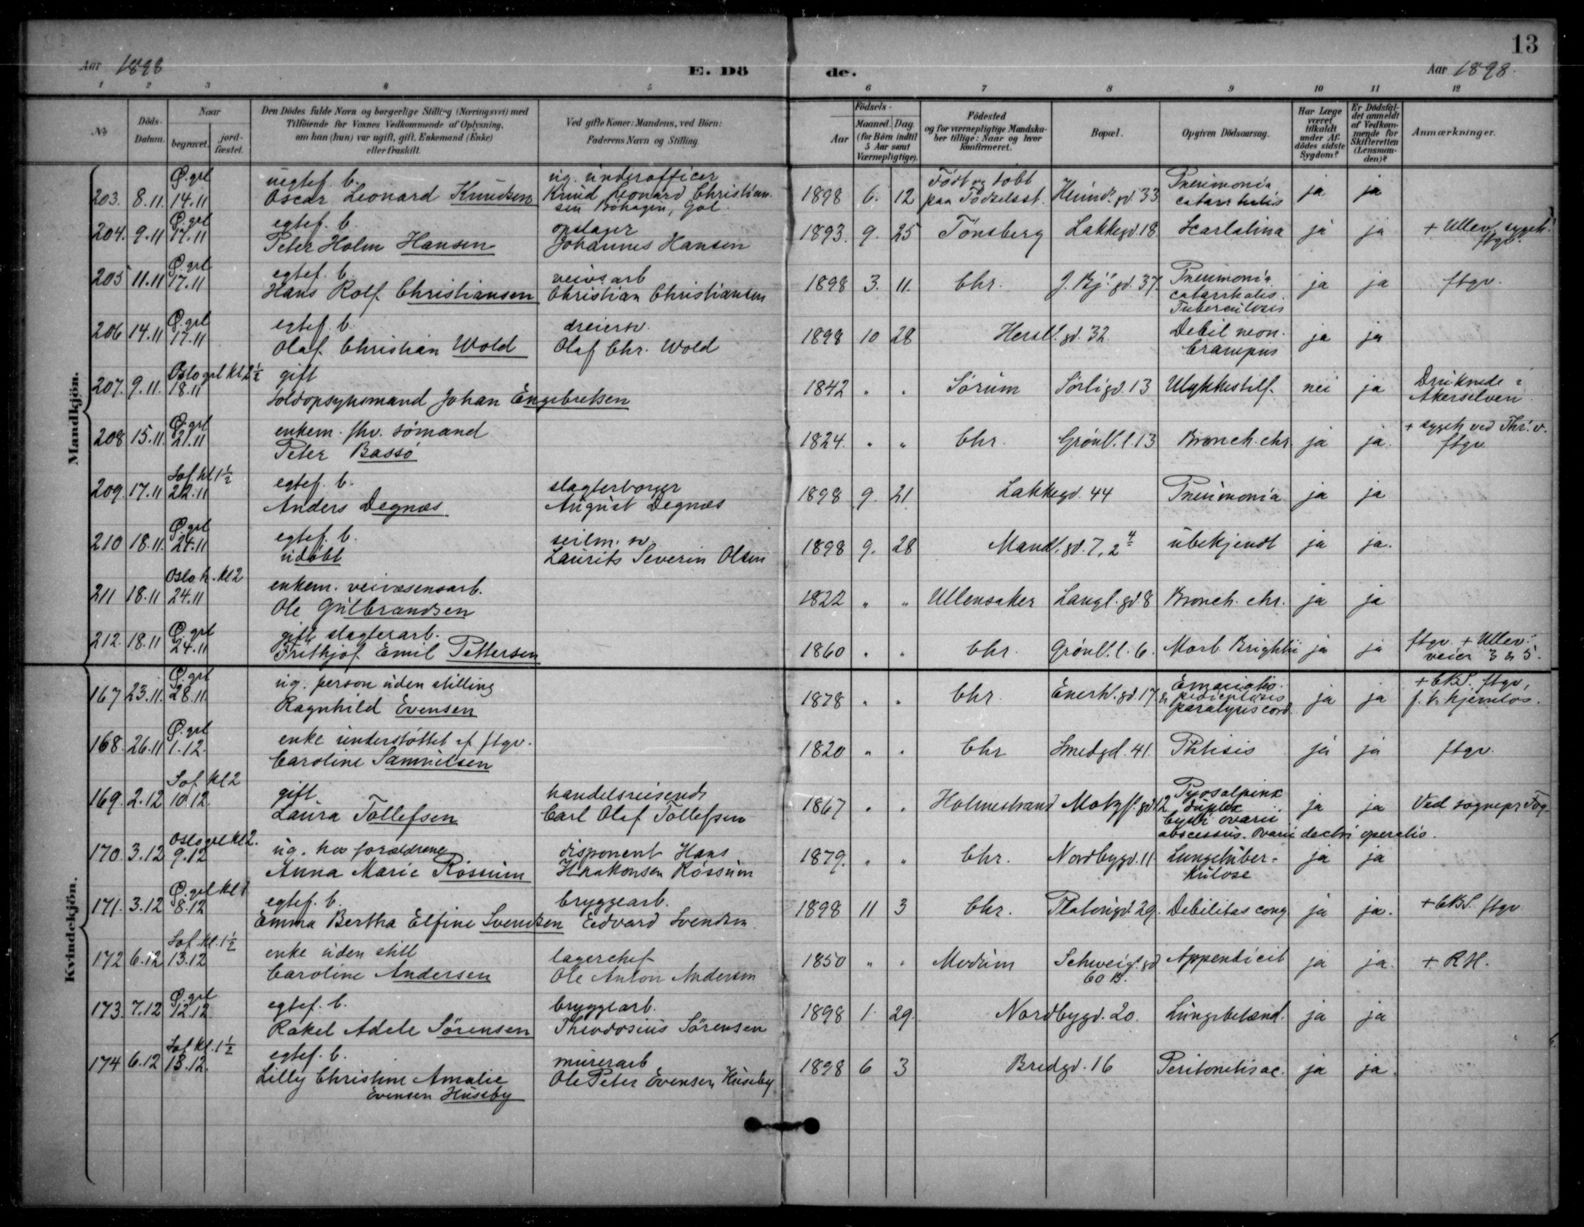 13
Aar 1898
E. Dö de.
Aar 1898.
1 2 3 4 5 6 7 8 9 10 11 12
No. Döds-Datum. Naar begravet. jord-fæstet. Den Dödes fulde Navn og borgerlige Stilling (Næringsvei) med Tilföiende for Voxnes Vedkommende af Oplysning, om han (hun) var ugift, gift, Enkemand (Enke) eller fraskilt. Ved gifte Koner: Mandens, ved Börn: Faderens Navn og Stilling. Födsels- Aar Maaned. Dag (for Börn indtil 5 Aar samt Værnepligtige). Födested og for værnepligtige Mandskaber tillige: Naar og hvor konfirmeret. Bopæl. Opgiven Dödsaarsag. Har Læge været tilkaldt under Afdödes sidste Sygdom? Er Dödsfaldet anmeldt af Vedkommende for Skifteretten (Lensmanden)? Anmærkninger.
Mandkjön.
203. 8.11 Ø. grl 14.11 uegtef. b. Oscar Leonard Knudsen ug. underofficer Knud Leonard Christiansen 1898 6. 12 Født og døbt paa Fødselsst. Heimd. gd 33 Pneumonia catarrhalis ja ja
204. 9.11 Ø. grl 17.11 egtef. b. Peter Holm Hansen opslager Johannes Hansen 1893. 9. 25 Tønsberg Lakkegd 18 Scarlatina ja ja + Ullev. sygeh. ftgv.
205 11.11 Ø. grl 17.11 egtef. b. Hans Rolf Christiansen veivæs arb Christian Christiansen 1898 3. 11. Chr. J. Bj. gd. 37 Pneumonia catarrhalis. Tuberculosis ja ja ftgv.
206 14.11 Ø. grl 17.11 egtef. b. Olaf Christian Wold dreiersv. Olaf Chr. Wold 1898 10 28 Hersl. gd 32 Debil. neon. Crampus ja ja
207. 9.11. Oslo grl kl 2½ 18.11 gift Toldopsynsmand Johan Engebretsen 1842 " " Sørum Sørligd 13 Ulykkestilf. nei ja Druknede i Akerselven.
208 15.11 Ø. grl 21.11 enkem. fhv. sømand Peter Basso 1824. " " Chr. Grønl. l. 13 Bronch. chr. ja ja + sygeh ved Thr.v. ftgv
209. 17.11 Sof. kl 1½ 22.11 egtef. b. Anders Degnæs slagterborger August Degnæs 1898 9. 21. Lakkegd. 44 Pneumonia ja ja
210 18.11 Ø. grl 24.11 egtef. b. udøbt seilm. sv. Laurits Severin Olsen 1898 9. 28 Mandl. gd. 7, 2 ubekjendt ja ja.
211 18.11 Oslo h. kl 2 24.11 enkem. veivæsensarb. Ole Gulbrandsen 1822 " " Ullensaker Langl. gd 8 Bronch. chr. ja ja
212. 18.11 Ø. grl 24.11 gift slagterarb. Frithjof Emil Pettersen 1860 " " Chr. Grønl. l. 6. Morb. Brightii ja ja ftgv. + Ullev. veier 3 & 5.
Kvindekjön.
167 23.11 Ø. grl 28.11. ug. person uden stilling Ragnhild Evensen 1878 " " Chr Enerh. gd. 17 paralysis cord. ja ja + CBS. ftgv, f. t. hjemløs.
168. 26.11 Ø. grl 1.12. enke understøttet af ftgv. Caroline Samuelsen 1820 " " Chr Smedgd. 41. Phtisis ja ja ftgv.
169. 2.12 Sof. kl 2 10.12. gift Laura Tollefsen handelsreisende Carl Olaf Tollefsen 1867 " " Holmestrand Motzf. gd 12 Pyosalpinx duplex Cystis ovarii abscessus. ovarii dextri operatis. ja ja Ved sognepr.
170. 3.12 Oslo grl kl 2. 9.12 ug. hos forældrene Anna Marie Røssum disponent Hans Haakonsen Røssum 1879. " " Chr. Nordbygd. 11. Lungetuberkulose ja ja
171. 3.12 Ø. grl kl 1 8.12 egtef. b. Emma Bertha Elfine Svendsen bryggearb. Edvard Svendsen. 1898 11 3 Chr. Platougd. 29. Debilitas cong. ja ja. + CBS. ftgv
172 6.12 Sof. kl. 1½ 13.12 enke uden still Caroline Andersen lagerchef Ole Anton Andersen 1850 " " Modum Schweig. gd 60 B. Appendicit ja ja. + RH.
173. 7.12 Ø. grl 12.12 egtef. b. Rakel Adele Sørensen bryggearb. Theodosius Sørensen 1898 1. 29. Nordbygd. 20. Lungebetænd. ja ja
174 6.12 Sof. kl. 1½ 13.12. egtef. b. Lilly Christine Amalie Evensen Huseby murerarb Ole Peter Evensen Huseby 1898 6 3 Bredgd. 16 Peritonitis ac. ja ja.